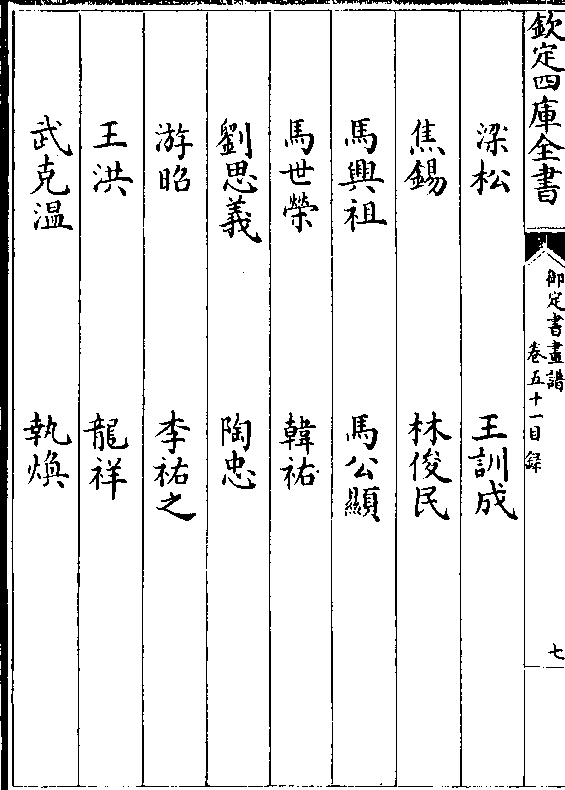 欽定四庫全書
御定書畫譜
卷五十一目錄
七
梁松 王訓成
焦錫 林俊民
馬興祖 馬公顯
馬世榮 韓祐
劉思義 陶忠
游昭 李祐之
王洪 龍祥
武克温 執煥